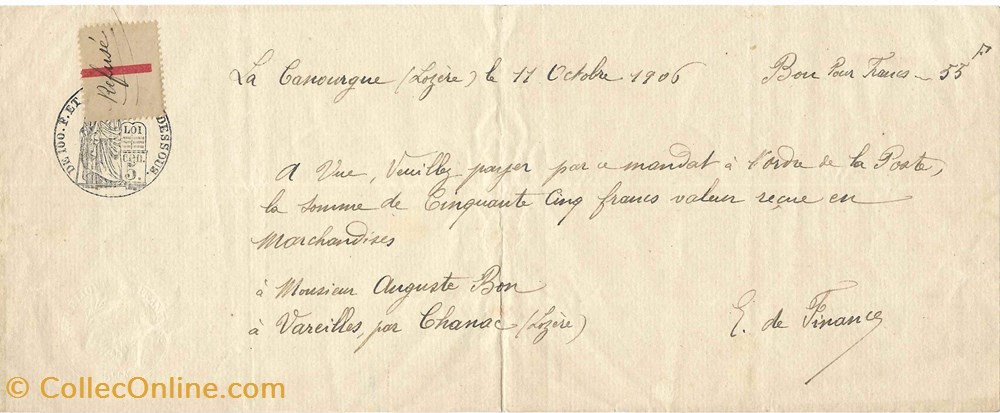 Refusé
La Canourgue (Lozère) le 11 Octobre 1906 Bon Pour Francs - 55 F
DE 100.F. ET DESSOUS.
LOI
5.
A Vue, Veuillez payer par ce mandat à l'ordre de la Poste,
la somme de Cinquante Cinq francs valeur reçue en
Marchandises
à Monsieur Auguste Bon
à Vareilles, par Chanac (Lozère)
E. de Finance
© CollecOnline.com